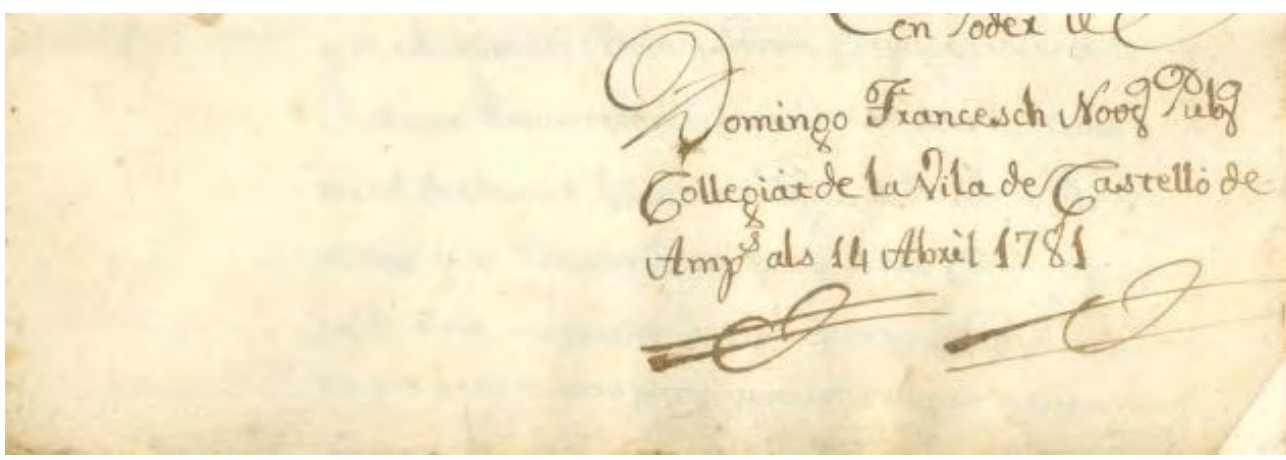 en Poder de
Domingo Francesch Noog Pubg
Collegiat de la Vila de Castelló de
Amp.s als 14 Abril 1781